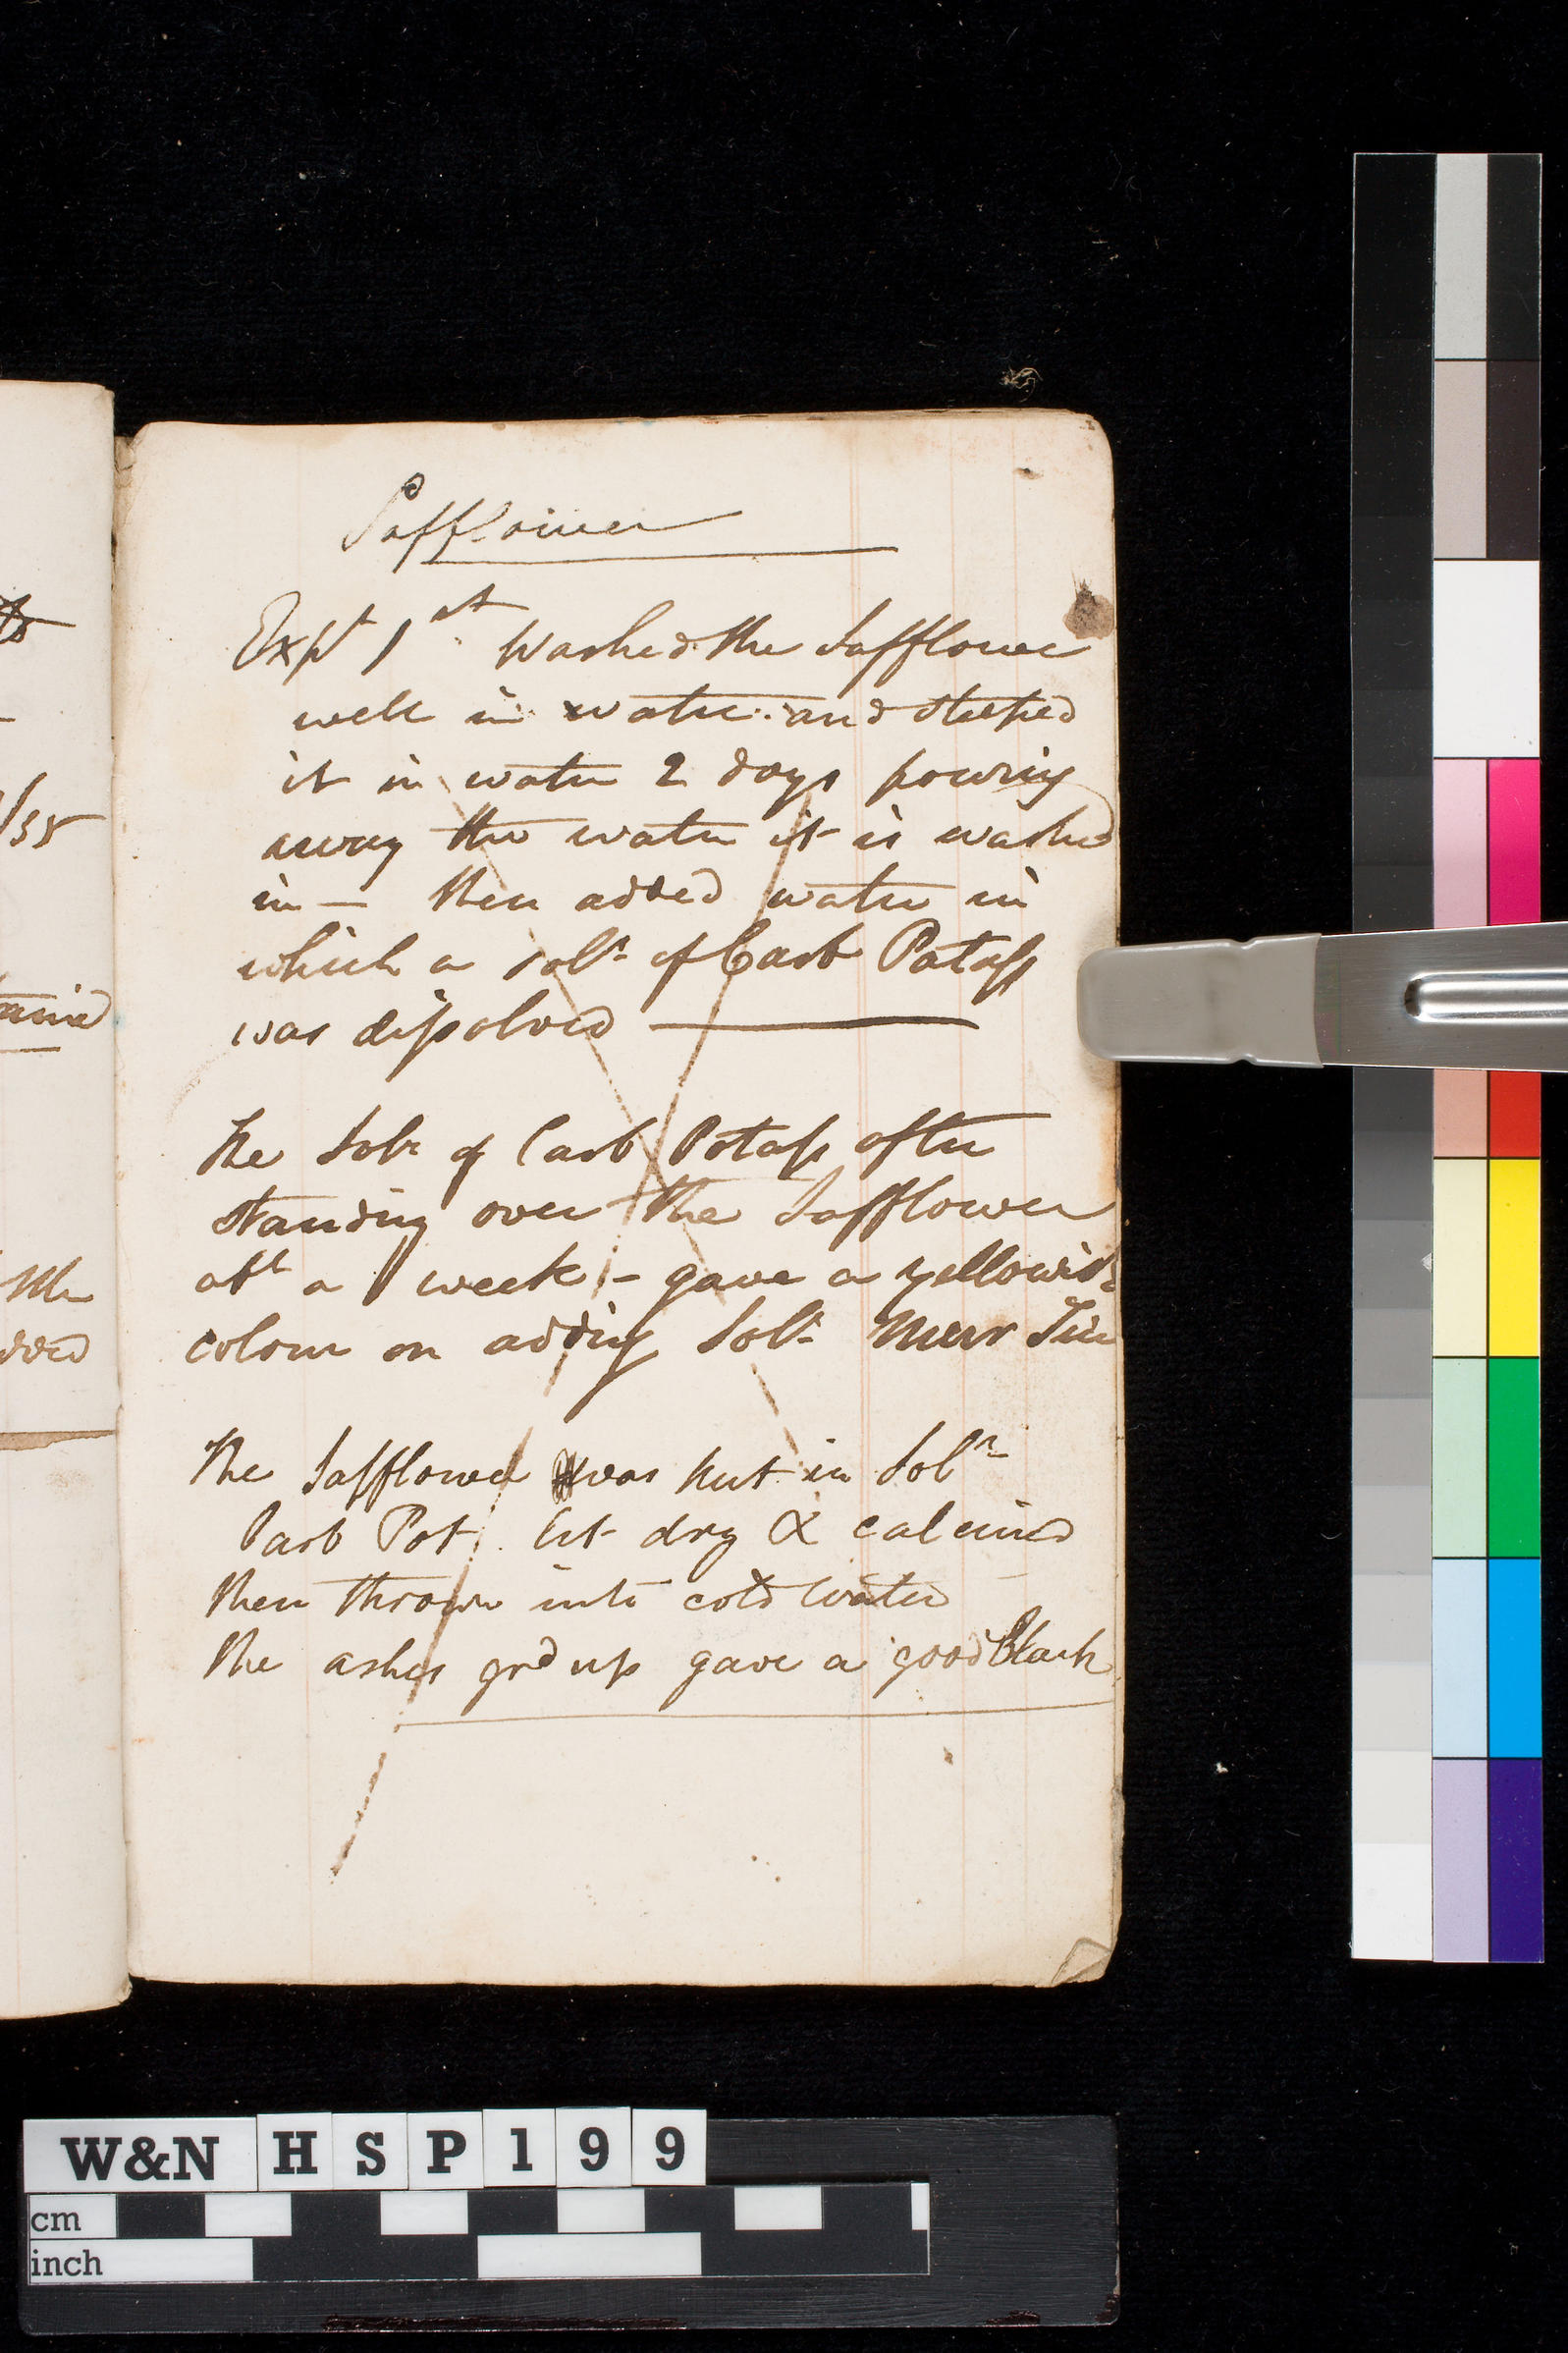 Safflower
Expt 1st Washed the Safflower
well in water and steeped
it in water 2 days powring
away the water it is washed
in — then added water in
which a soln of Carb Potass
was dissolved —
The Soln of Carb Potass after
standing over the Safflower
abt a week – gave a yellowish
colour on adding Soln Mur Tin
The Safflower was put in Soln
Carb Pot. let dry & calcined
then thrown into cold water
the ashes grd up gave a good Black
/38
The
W&N HSP199
cm
inch